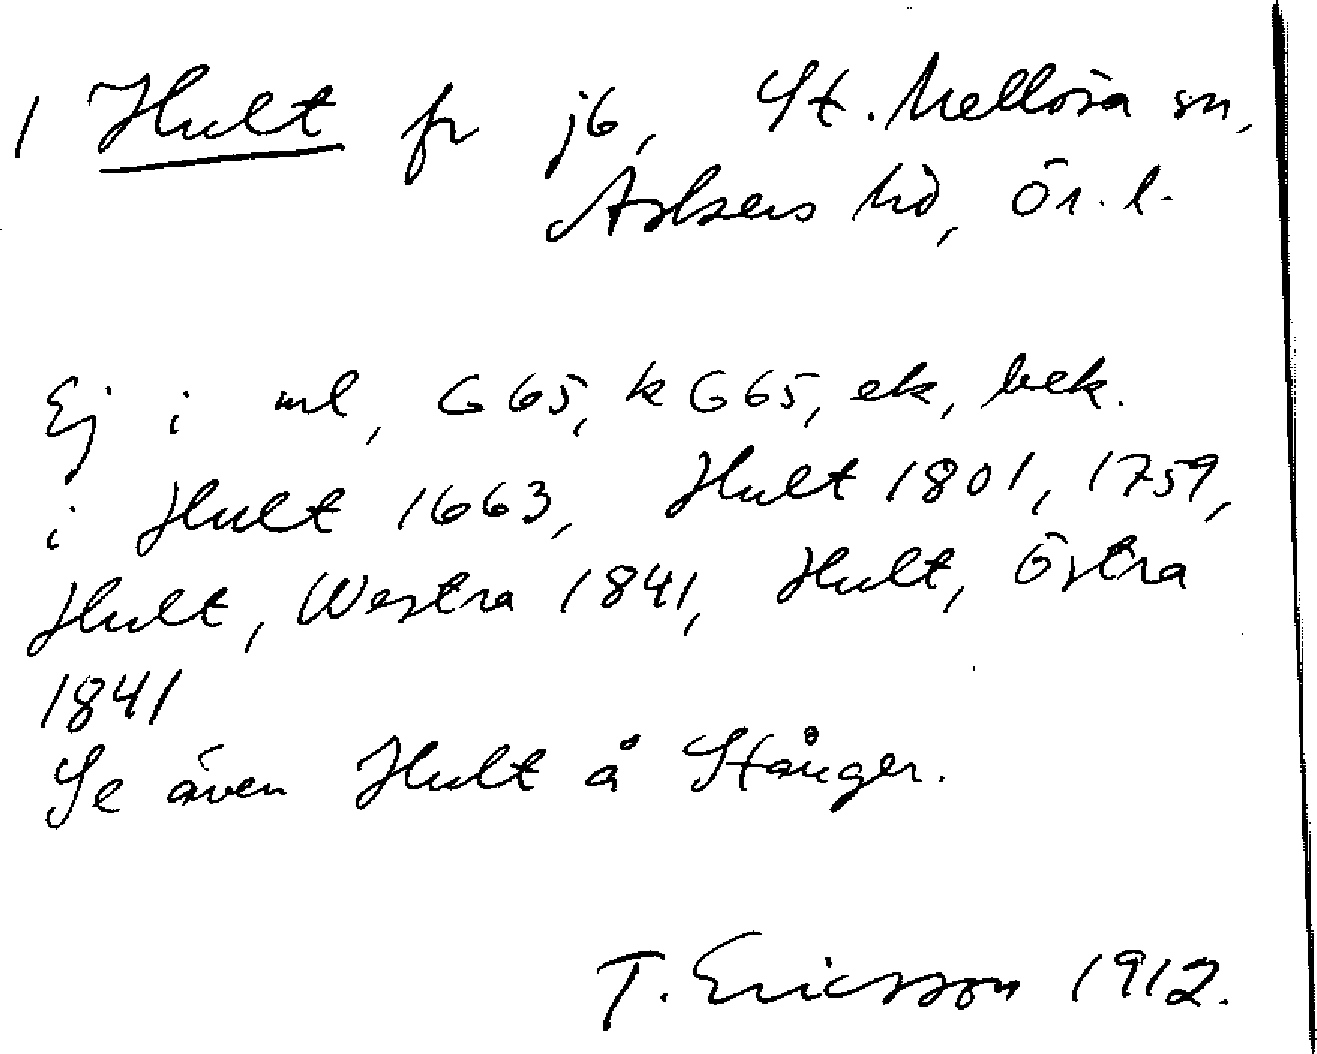 1 Hult fr jb, St. Mellösa sn,
Askers hd, Ör. l.
Ej i ml, G65, kG65, ek, bek.
i Hult 1663, Hult 1801, 1759,
Hult, Westra 1841, Hult, Östra
1841
Se även Hult å Stånger.
T. Ericsson 1912.